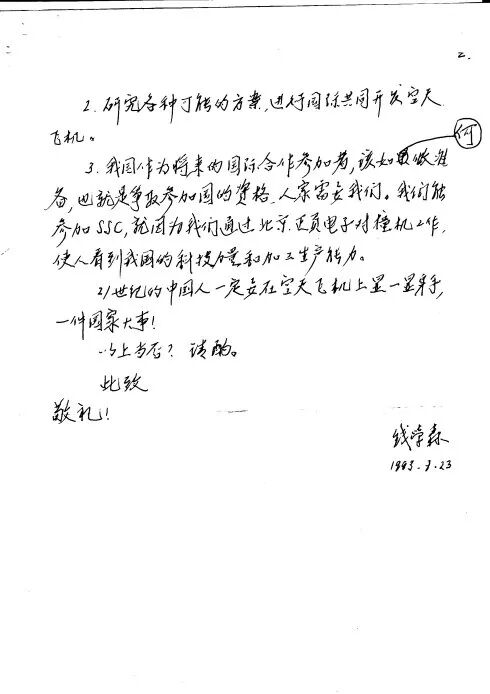 2.
2. 研究各种可能的方案,进行国际共同开发空天
飞机。
3. 我国作为将来的国际合作参加者,该如何做准
备,也就是争取参加国的资格,人家需要我们。我们能
参加SSC,就因为我们通过北京正负电子对撞机工作,
使人看到我国的科技力量和加工生产能力。
21世纪的中国人一定要在空天飞机上显一显身手,
一件国家大事!
以上当否?请酌。
此致
敬礼!
钱学森
1993.3.23